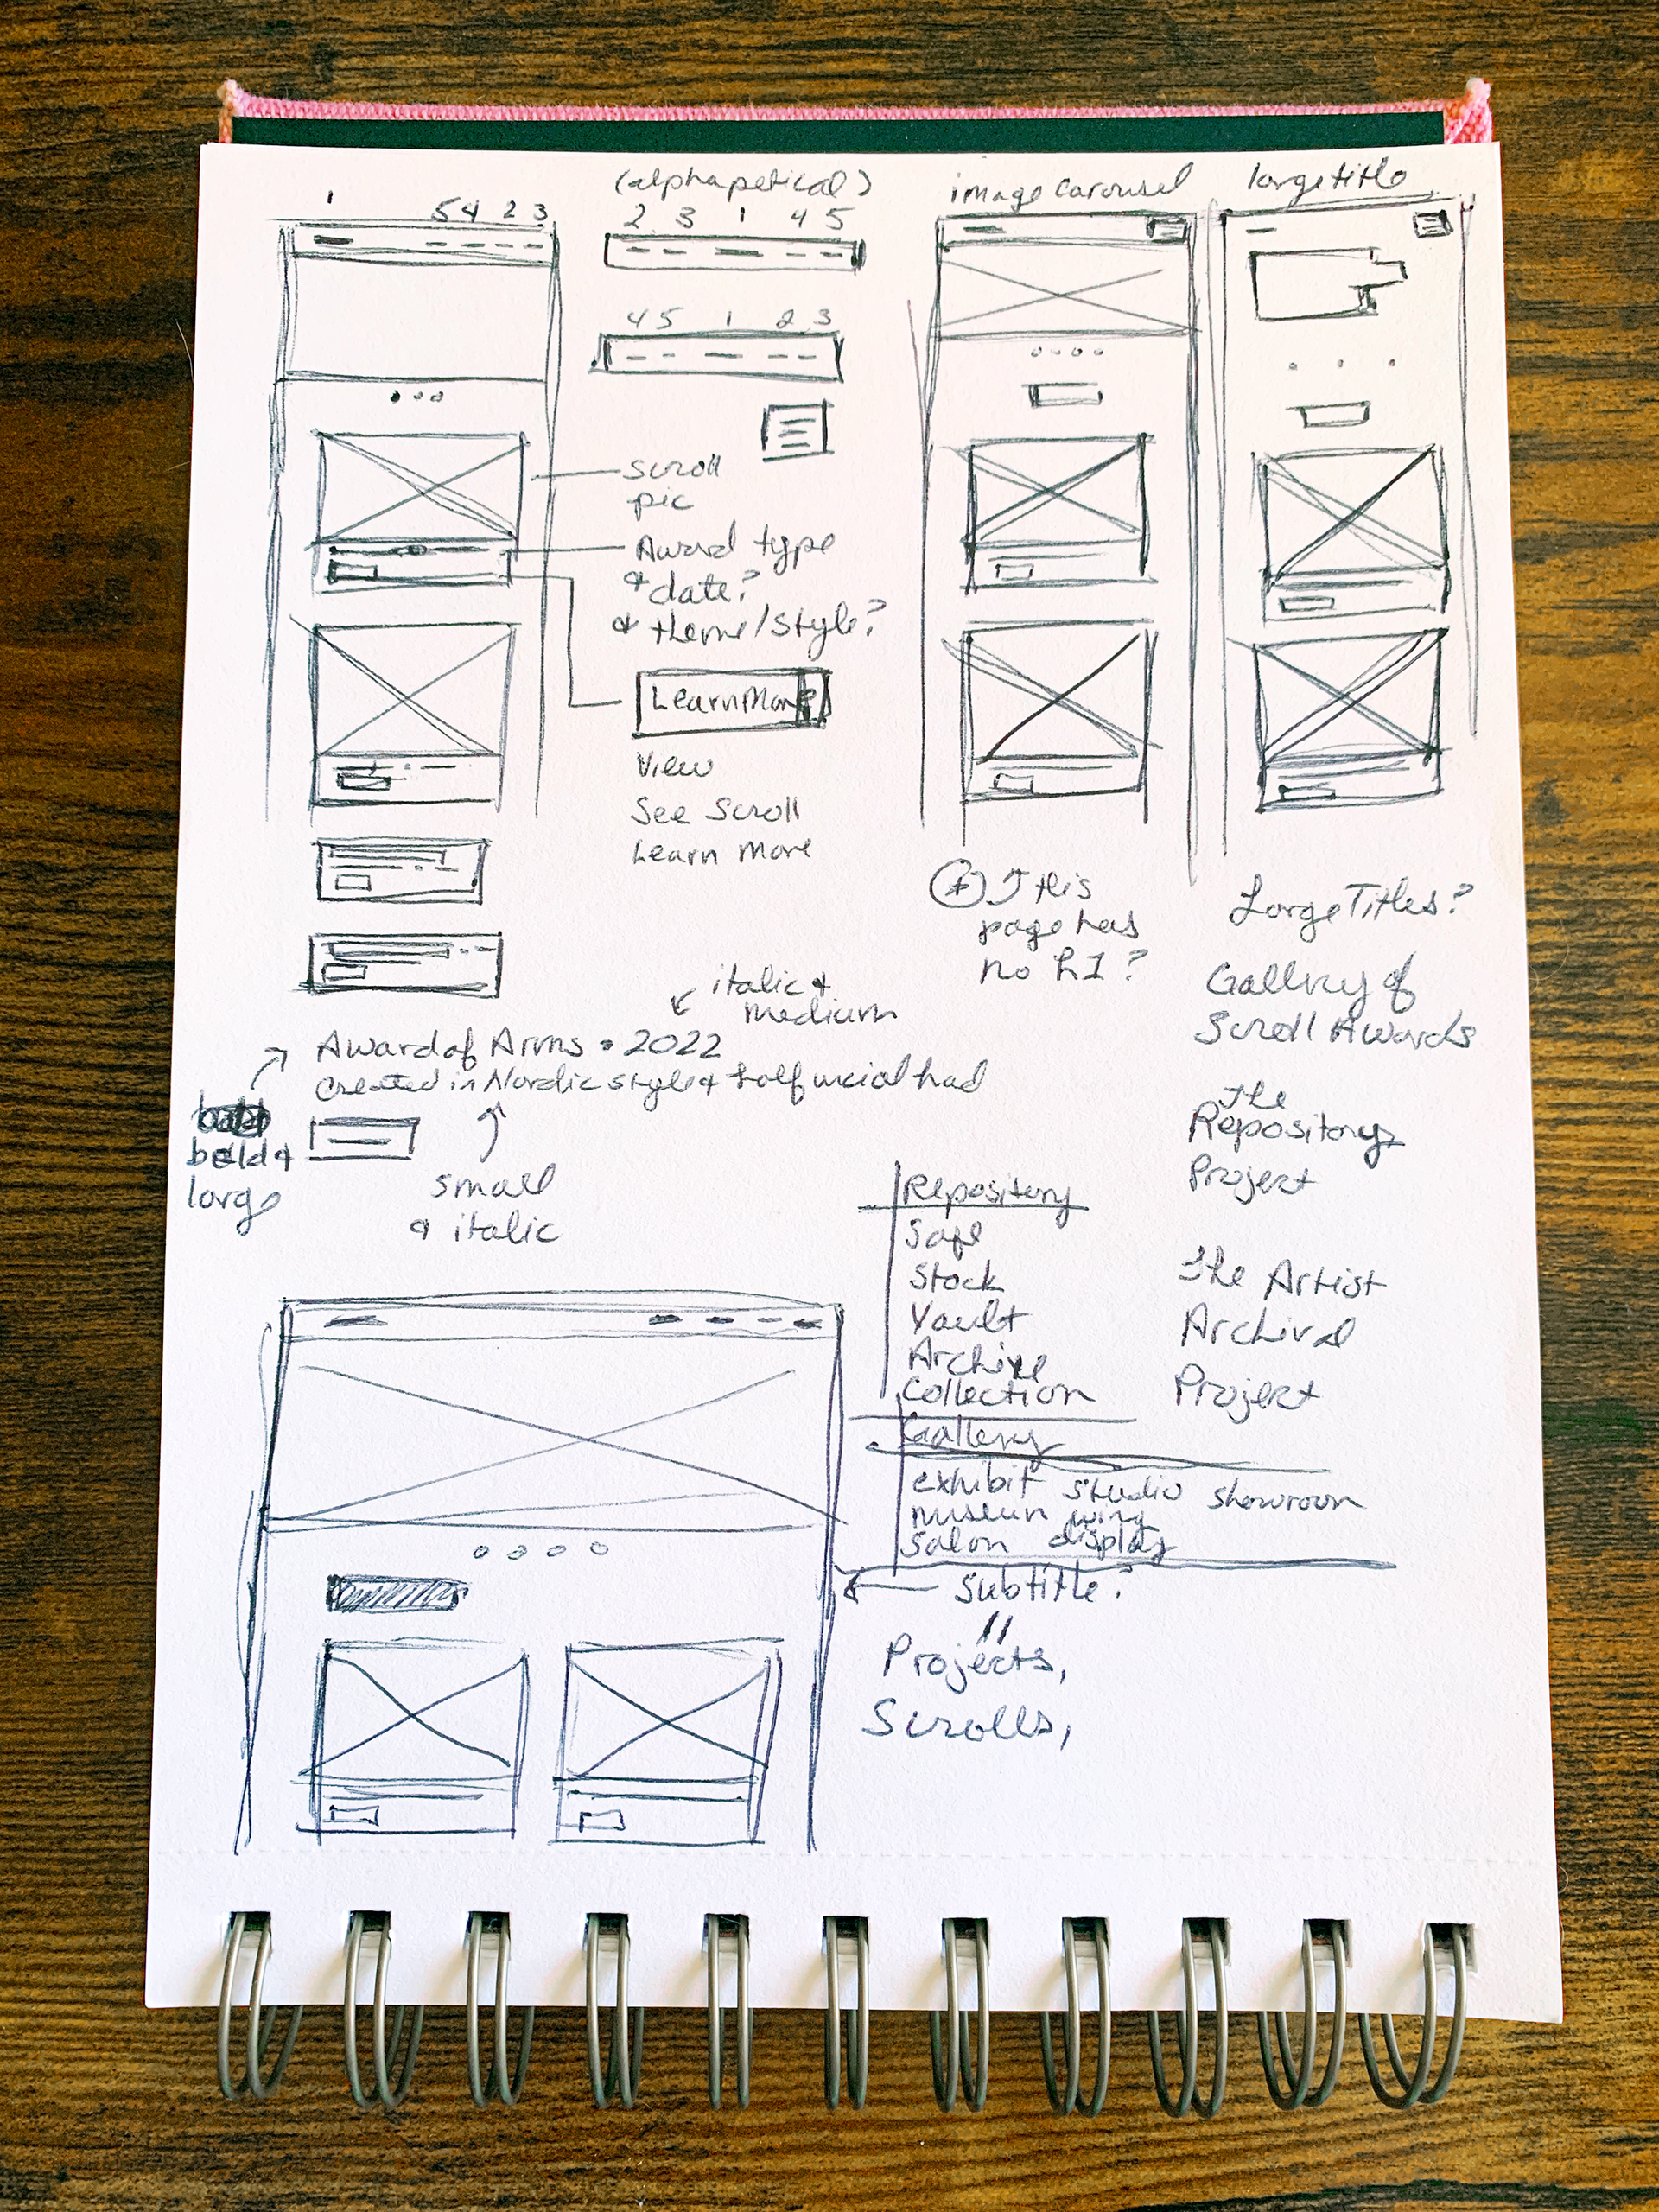 1
54 2 3
(alphapetical)
2 3 1 4 5
4 5 1 2 3
image carousel
large title
scroll
pic
Award type
& date?
& theme/style?
Learn More
View
See Scroll
Learn More
This
page has
no h1?
Large Titles?
Gallery of
Scroll Awards
The
Repository
Project
The Artist
Archival
Project
italic &
medium
Award of Arms • 2022
Created in Nordic style & half uncial had
bold &
large
small
& italic
Repository
Safe
Stock
Vault
Archive
Collection
Gallery
exhibit studio showroom
museum wing
salon display
Subtitle?
Projects,
Scrolls,